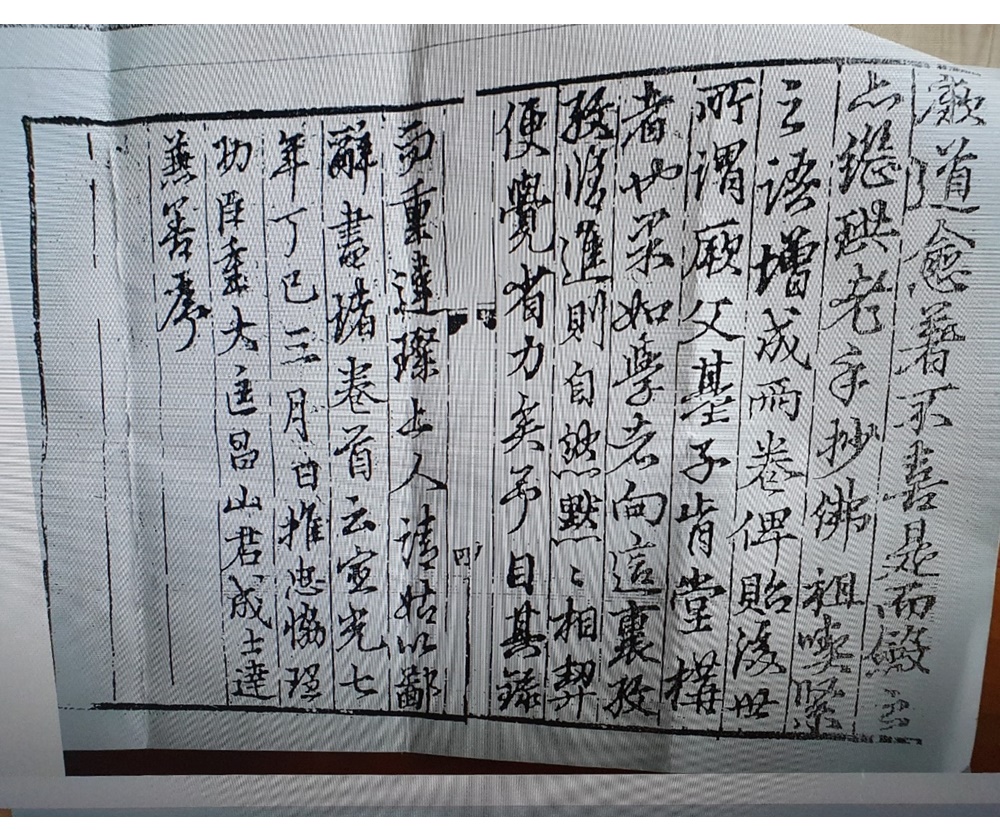 道愈著不書是而敏
繼珙老手抄佛祖喫緊
之語增成兩卷俾貽後世
所謂厥父基子肯堂構
者也果如學者向這裏
後進則自然默〻相契
便覺省力矣予目其錄
四
而重違璨上人請姑以鄙
辭書諸卷首云宣光七
年丁巳三月日推忠協理
功臣重大匡昌山君成士達
序